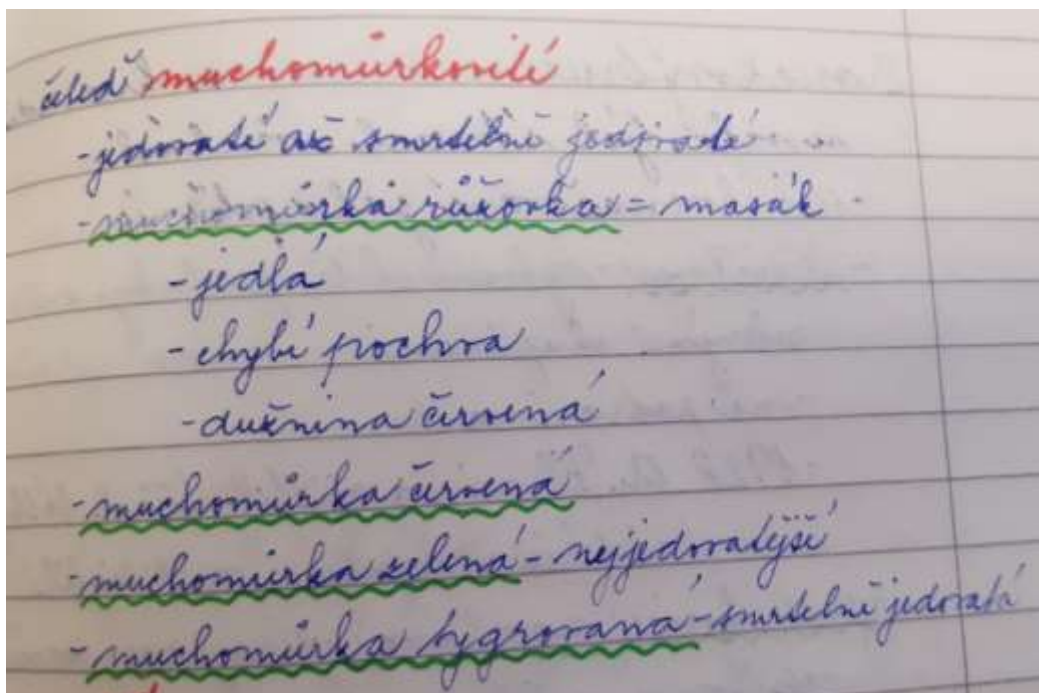 čeleď muchomůrkovité
- jedovaté až smrtelně jedovaté
- muchomůrka růžovka = masák
- jedlá
- chybí pochva
- dužnina červená
- muchomůrka červená
- muchomůrka zelená - nejjedovatější
- muchomůrka tygrovaná - smrtelně jedovatá